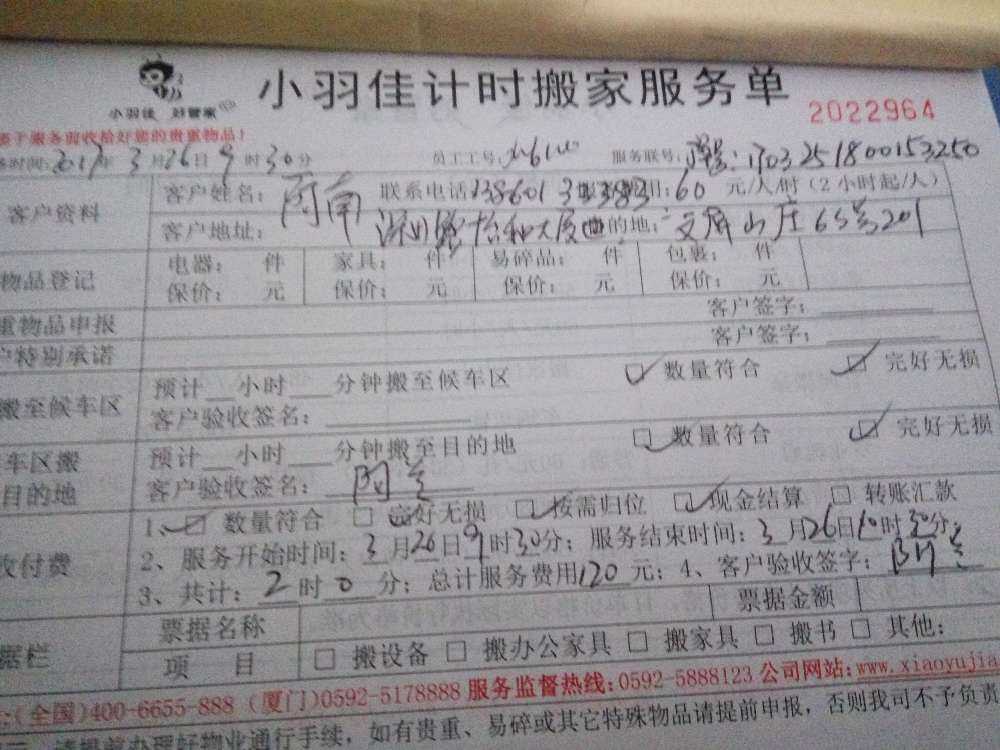 小羽佳计时搬家服务单
小羽佳 好管家
2022964
服务前收拾好您的贵重物品!
时间:2017年3月26日9时30分 员工工号: 服务联号:1703251800153250
客户资料 客户姓名: 联系电话 60元/人/时(2小时起/人)
客户地址: 怡和大厦 目的地:文屏山庄65号201
物品登记 电器: 件 家具: 件 易碎品: 件 包裹: 件
保价: 元 保价: 元 保价: 元 保价: 元
重物品申报 客户签字:
户特别承诺 客户签字:
搬至候车区 预计__小时___分钟搬至候车区 数量符合 完好无损
客户验收签名:
车区搬 预计__小时___分钟搬至目的地 数量符合 完好无损
目的地 客户验收签名:
收付费 1、 数量符合 完好无损 按需归位 现金结算 转账汇款
2、服务开始时间:3月26日9时30分;服务结束时间:3月26日10时30分;
3、共计:2时0分;总计服务费用120元;4、客户验收签字:
据栏 票据名称 票据金额
项 目 搬设备 搬办公家具 搬家具 搬书 其他:
:(全国)400-6655-888 (厦门)0592-5178888 服务监督热线:0592-5888123 公司网站:www.xiaoyujia
请提前办理好物业通行手续,如有贵重、易碎或其它特殊物品请提前申报,否则我司不予负责